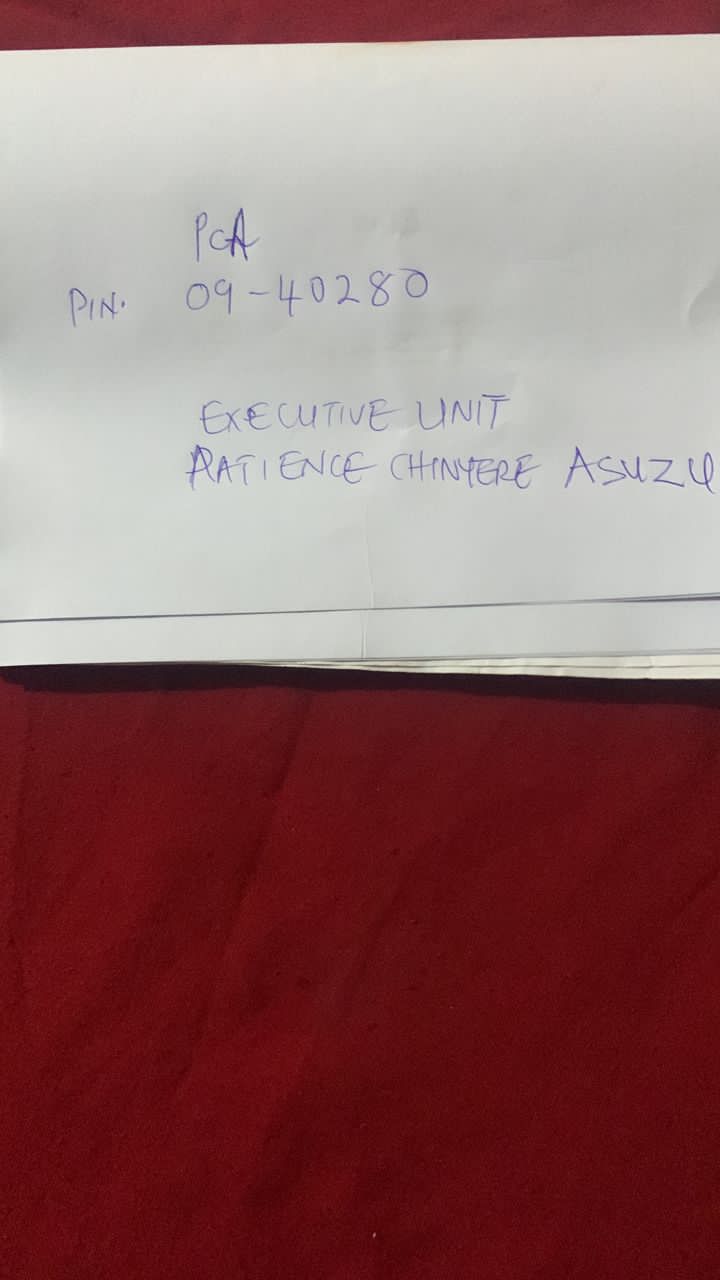 PCA
PIN. 09-40280
EXECUTIVE UNIT
PATIENCE CHINYERE ASUZU